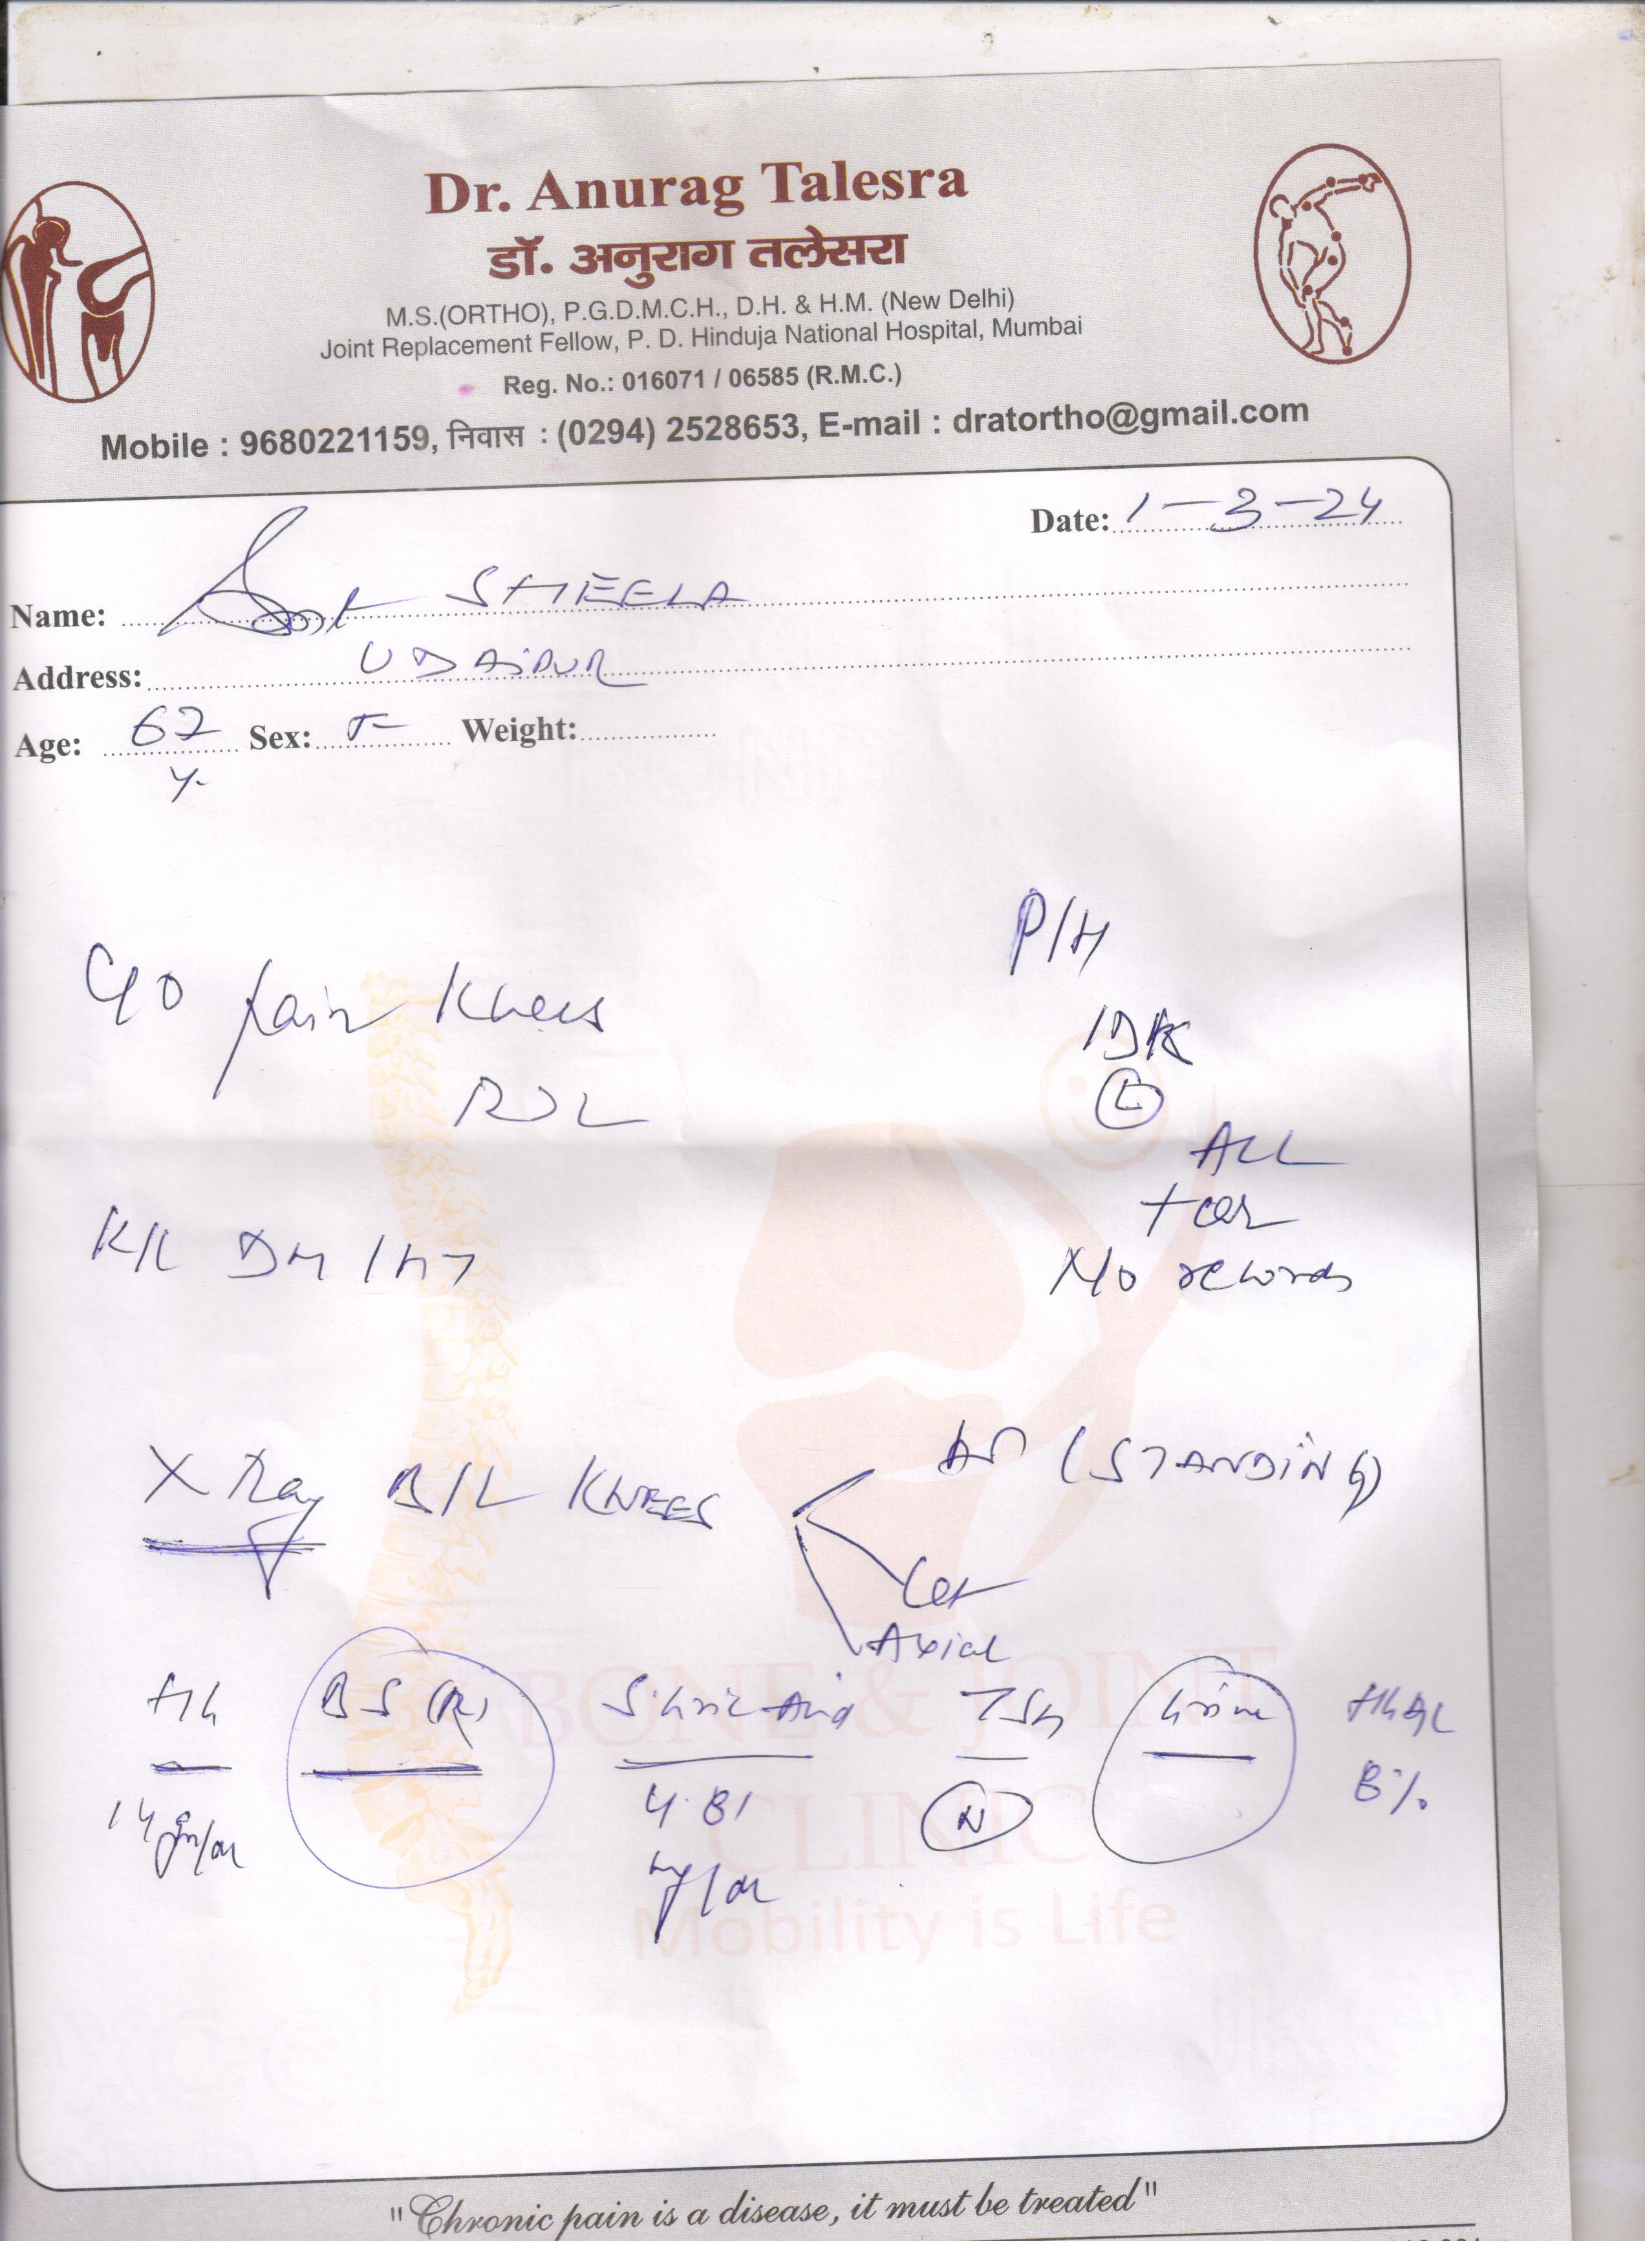 Dr. Anurag Talesra
डॉ. अनुराग तलेसरा
M.S.(ORTHO), P.G.D.M.C.H., D.H. & H.M. (New Delhi)
Joint Replacement Fellow, P. D. Hinduja National Hospital, Mumbai
Reg. No.: 016071 / 06585 (R.M.C.)
Mobile : 9680221159, निवास : (0294) 2528653, E-mail : dratortho@gmail.com
Date: 1-3-24
Name: Smt SHEELA
Address: UDAIPUR
Age: 67 Sex: F Weight:
y.
P/H
C/O pain Knees
IDK
R>L
L
ACL
tear
K/C DM/HT
No records
X Ray B/L KNEES
AP (STANDING)
Lat
Axial
Hb BS (R) S. Uric Acid TSH Urine HbA1C
14 gm/dl 4.81 mg/dl N 8%
BONE & JOINT
CLINIC
Mobility is Life
"Chronic pain is a disease, it must be treated"